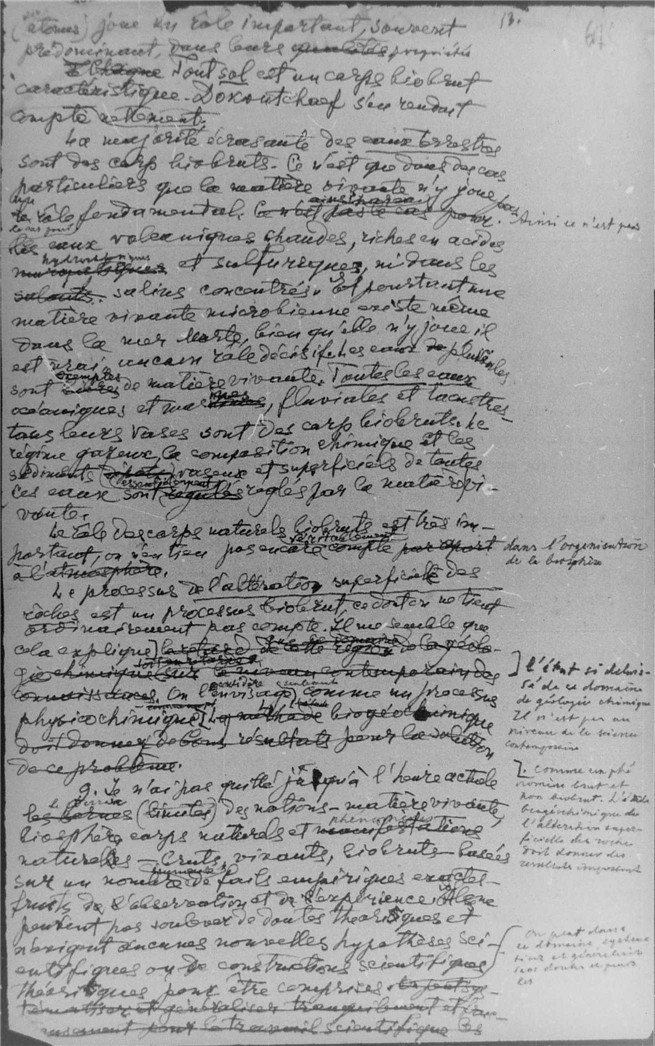 13.
(atomes) joue un rôle important, souvent
prédominant, dans leurs qualités propriétés
Chaque Tout sol est un corps biobrut
caractéristique. Dokoutchaef s'en rendait
compte nettement.
La majorité écrasante des eaux terrestres
sont des corps biobruts. Ce n'est que dans des cas
particuliers que la matière vivante n'y joue pas
le rôle fondamental. Ce n'est pas le cas pour. Ainsi ce n'est pas
les eaux volcaniques chaudes, riches en acides
et sulfuriques, ni dans les
salins concentrés. Et pourtant une
matière vivante microbienne existe même
dans la mer Morte, bien qu'elle n'y joue il
est vrai, aucun rôle décisif. Les eaux de pluie
sont exemptes de matière vivante. Toutes les eaux
océaniques et marines, fluviales et lacustres
tous leurs vases sont des corps biobruts. Le
régime gazeux, la composition chimique et les
sédiments vaseux et superficiels de toutes
ces eaux sont réglés par la matière vi-
vante.
Le rôle des corps naturels biobruts est très im-
portant, on n'en tient pas encore véritablement compte par rapport dans l'organisation
de la biosphère
à l'atmosphère.
Le processus de l'altération superficielle des
roches est un processus biobrut, ce dont on ne tient
ordinairement pas compte. Il me semble que
cela explique le retard de cette région de la géolo-
gie chimique sur le niveau contemporain des
connaissances. On l'envisage comme un processus
physicochimique. La méthode biogéochimique
doit donner de bons résultats pour la solution
de ce problème.
l'état si délais-
sé de ce domaine
de géologie chimique
Il n'est pas au
niveau de la science
contemporaine
comme un phé
nomène brut et
non biobrut. L'étude
biogéochimique de
l'altération super-
ficielle des roches
doit donner des
résultats importants
9. Je n'ai pas quitté jusqu'à l'heure actuelle
les bornes (limites) des notions - matière vivante,
biosphère, corps naturels et manifestations
naturelles - bruts, vivants, biobruts - basées
sur un nombre de faits empiriques exacts
fruits de l'observation et de l'expérience. Elles ne
peuvent pas soulever de doutes théoriques et
n'exigent aucunes nouvelles hypothèses sci-
entifiques ou de constructions scientifiques
théoriques pour être comprises.
et généraliser tranquillement
pour le travail scientifique les
On peut dans
ce domaine, systéma
tiser et généraliser